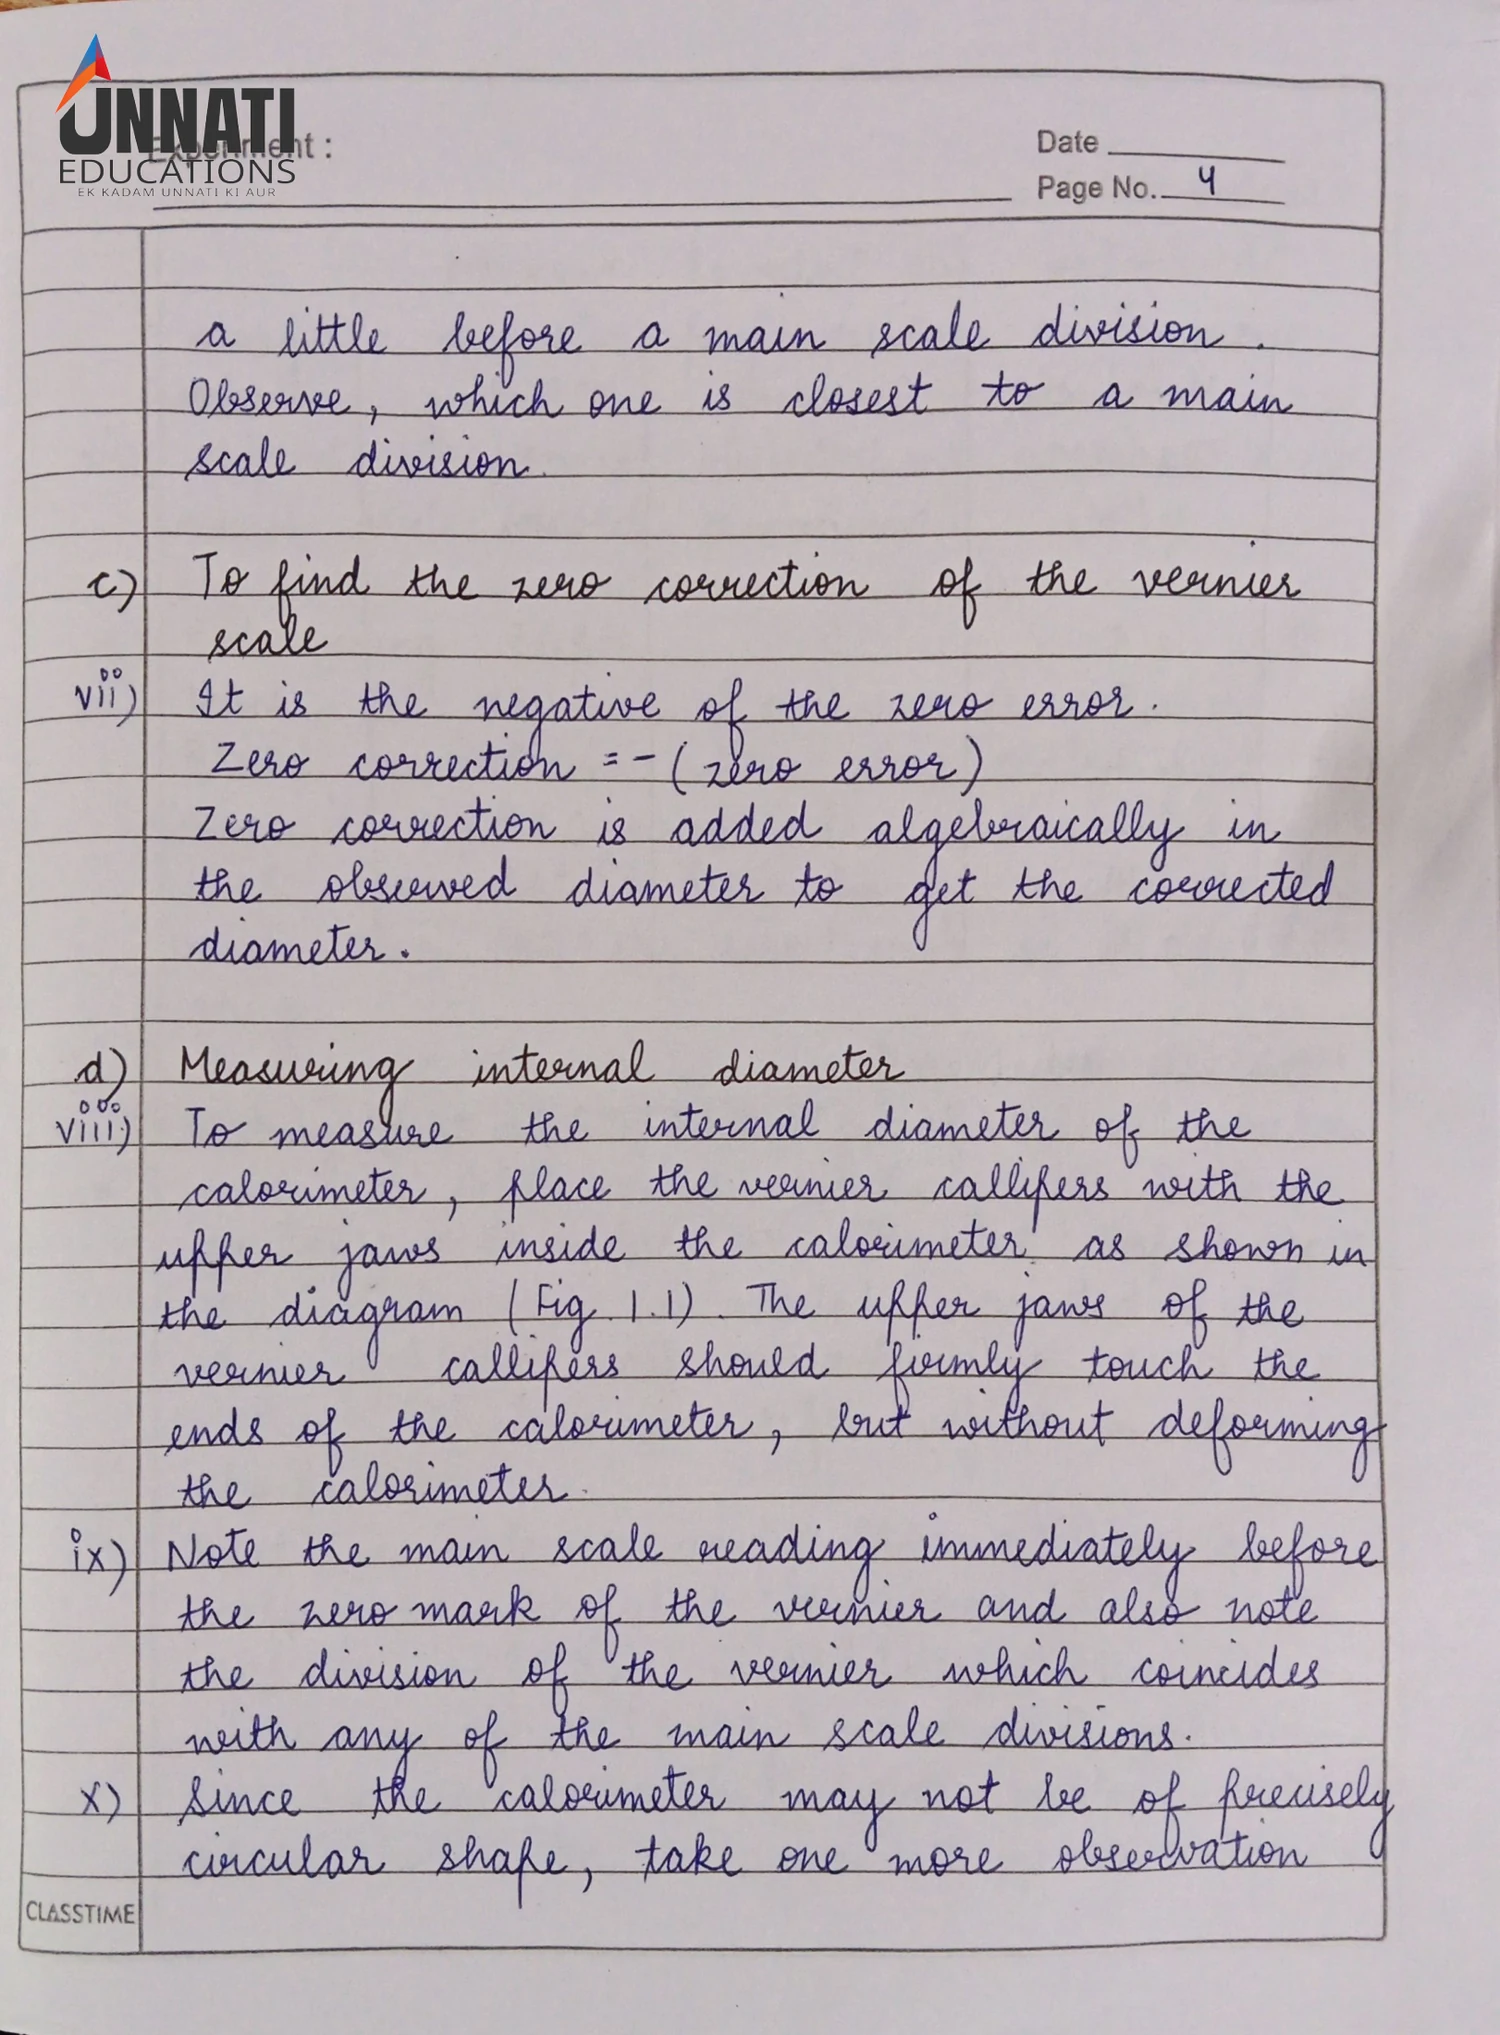 UNNATI
EDUCATIONS
EK KADAM UNNATI KI AUR
Experiment :
Date
Page No. 4
a little before a main scale division.
Observe, which one is closest to a main
scale division.
c) To find the zero correction of the vernier
scale
vii) It is the negative of the zero error.
Zero correction = - (zero error)
Zero correction is added algebraically in
the observed diameter to get the corrected
diameter.
d) Measuring internal diameter
viii) To measure the internal diameter of the
calorimeter, place the vernier callipers with the
upper jaws inside the calorimeter as shown in
the diagram (Fig. 1.1). The upper jaws of the
vernier callipers should firmly touch the
ends of the calorimeter, but without deforming
the calorimeter.
ix) Note the main scale reading immediately before
the zero mark of the vernier and also note
the division of the vernier which coincides
with any of the main scale divisions.
x) Since the calorimeter may not be of precisely
circular shape, take one more observation
CLASSTIME